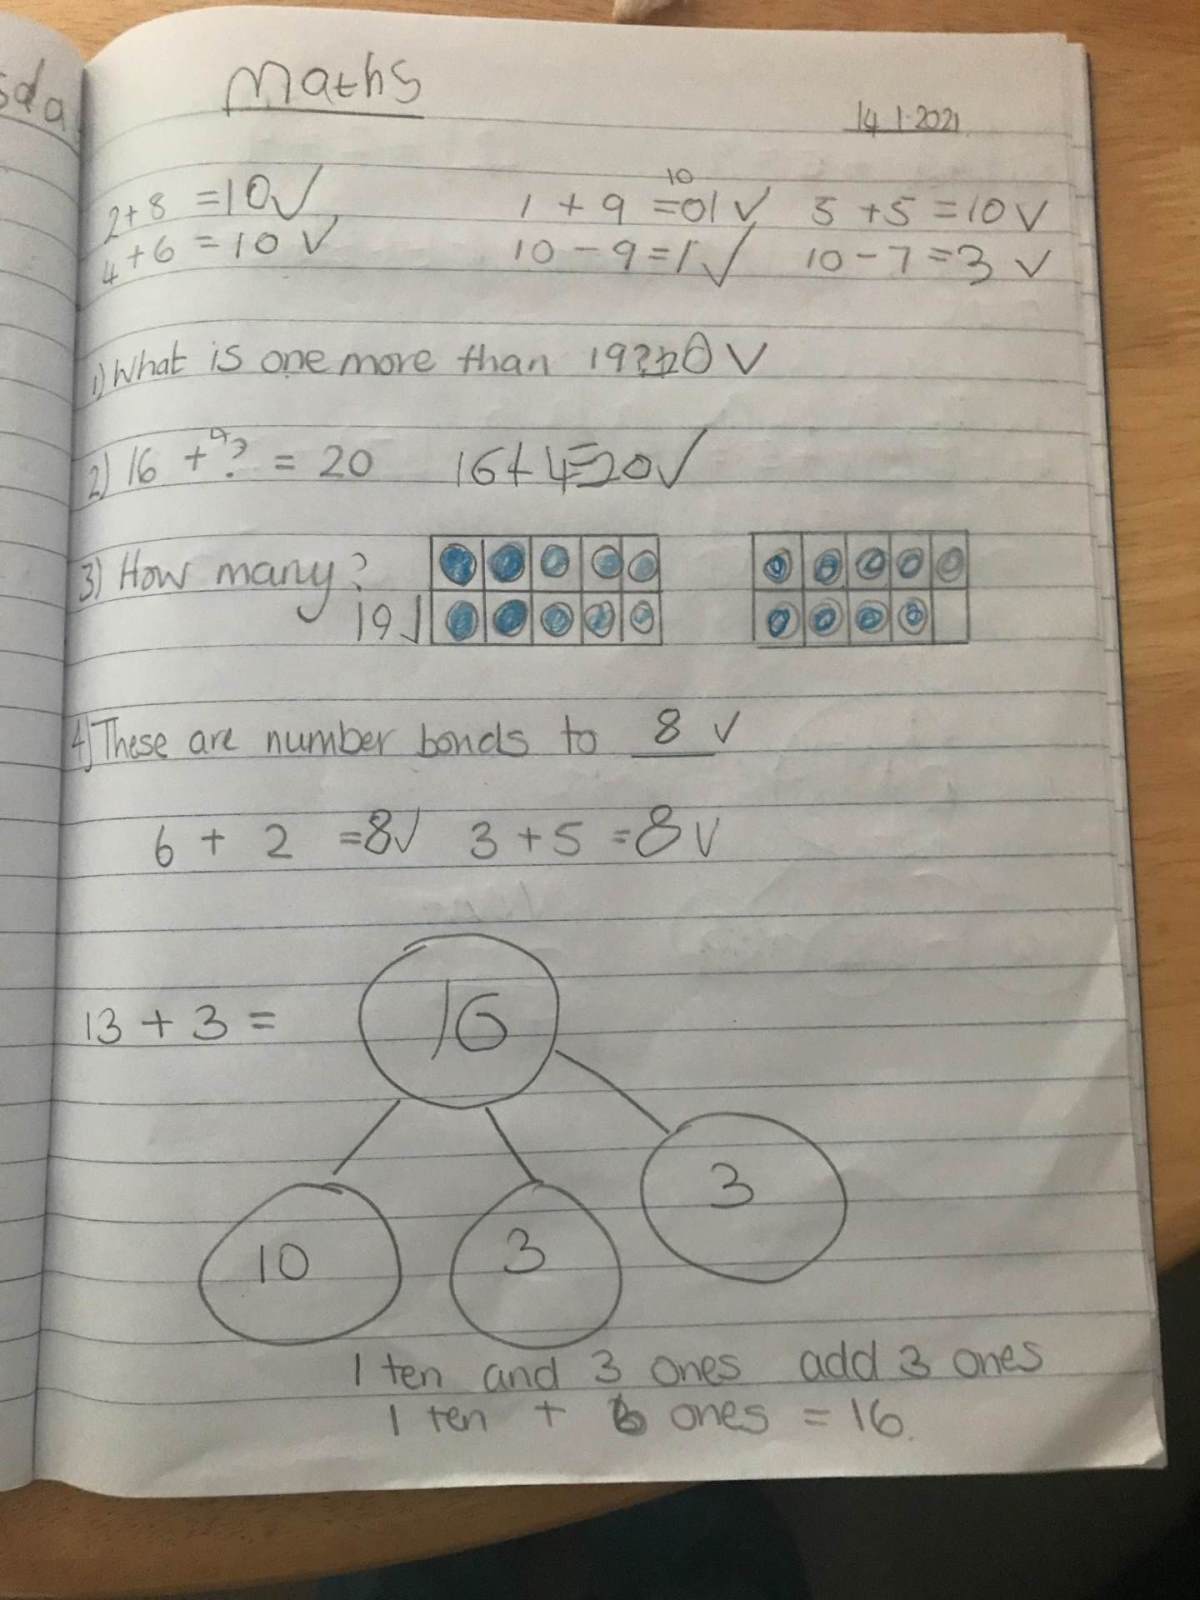 sda
Maths
14.1.2021
2+8 =10✓ 1 + 9 =01 ✓ 10 5 +5 =10 ✓
4+6 =10 ✓ 10 - 9=1 ✓ 10 - 7=3 ✓
1) What is one more than 19? 20 ✓
2) 16 + 4? = 20 16+4=20✓
3) How many?
19✓
4) These are number bonds to 8 ✓
6 + 2 =8✓ 3 +5 =8✓
13 + 3 = 16
10 3 3
1 ten and 3 ones add 3 ones
1 ten + 6 ones = 16.